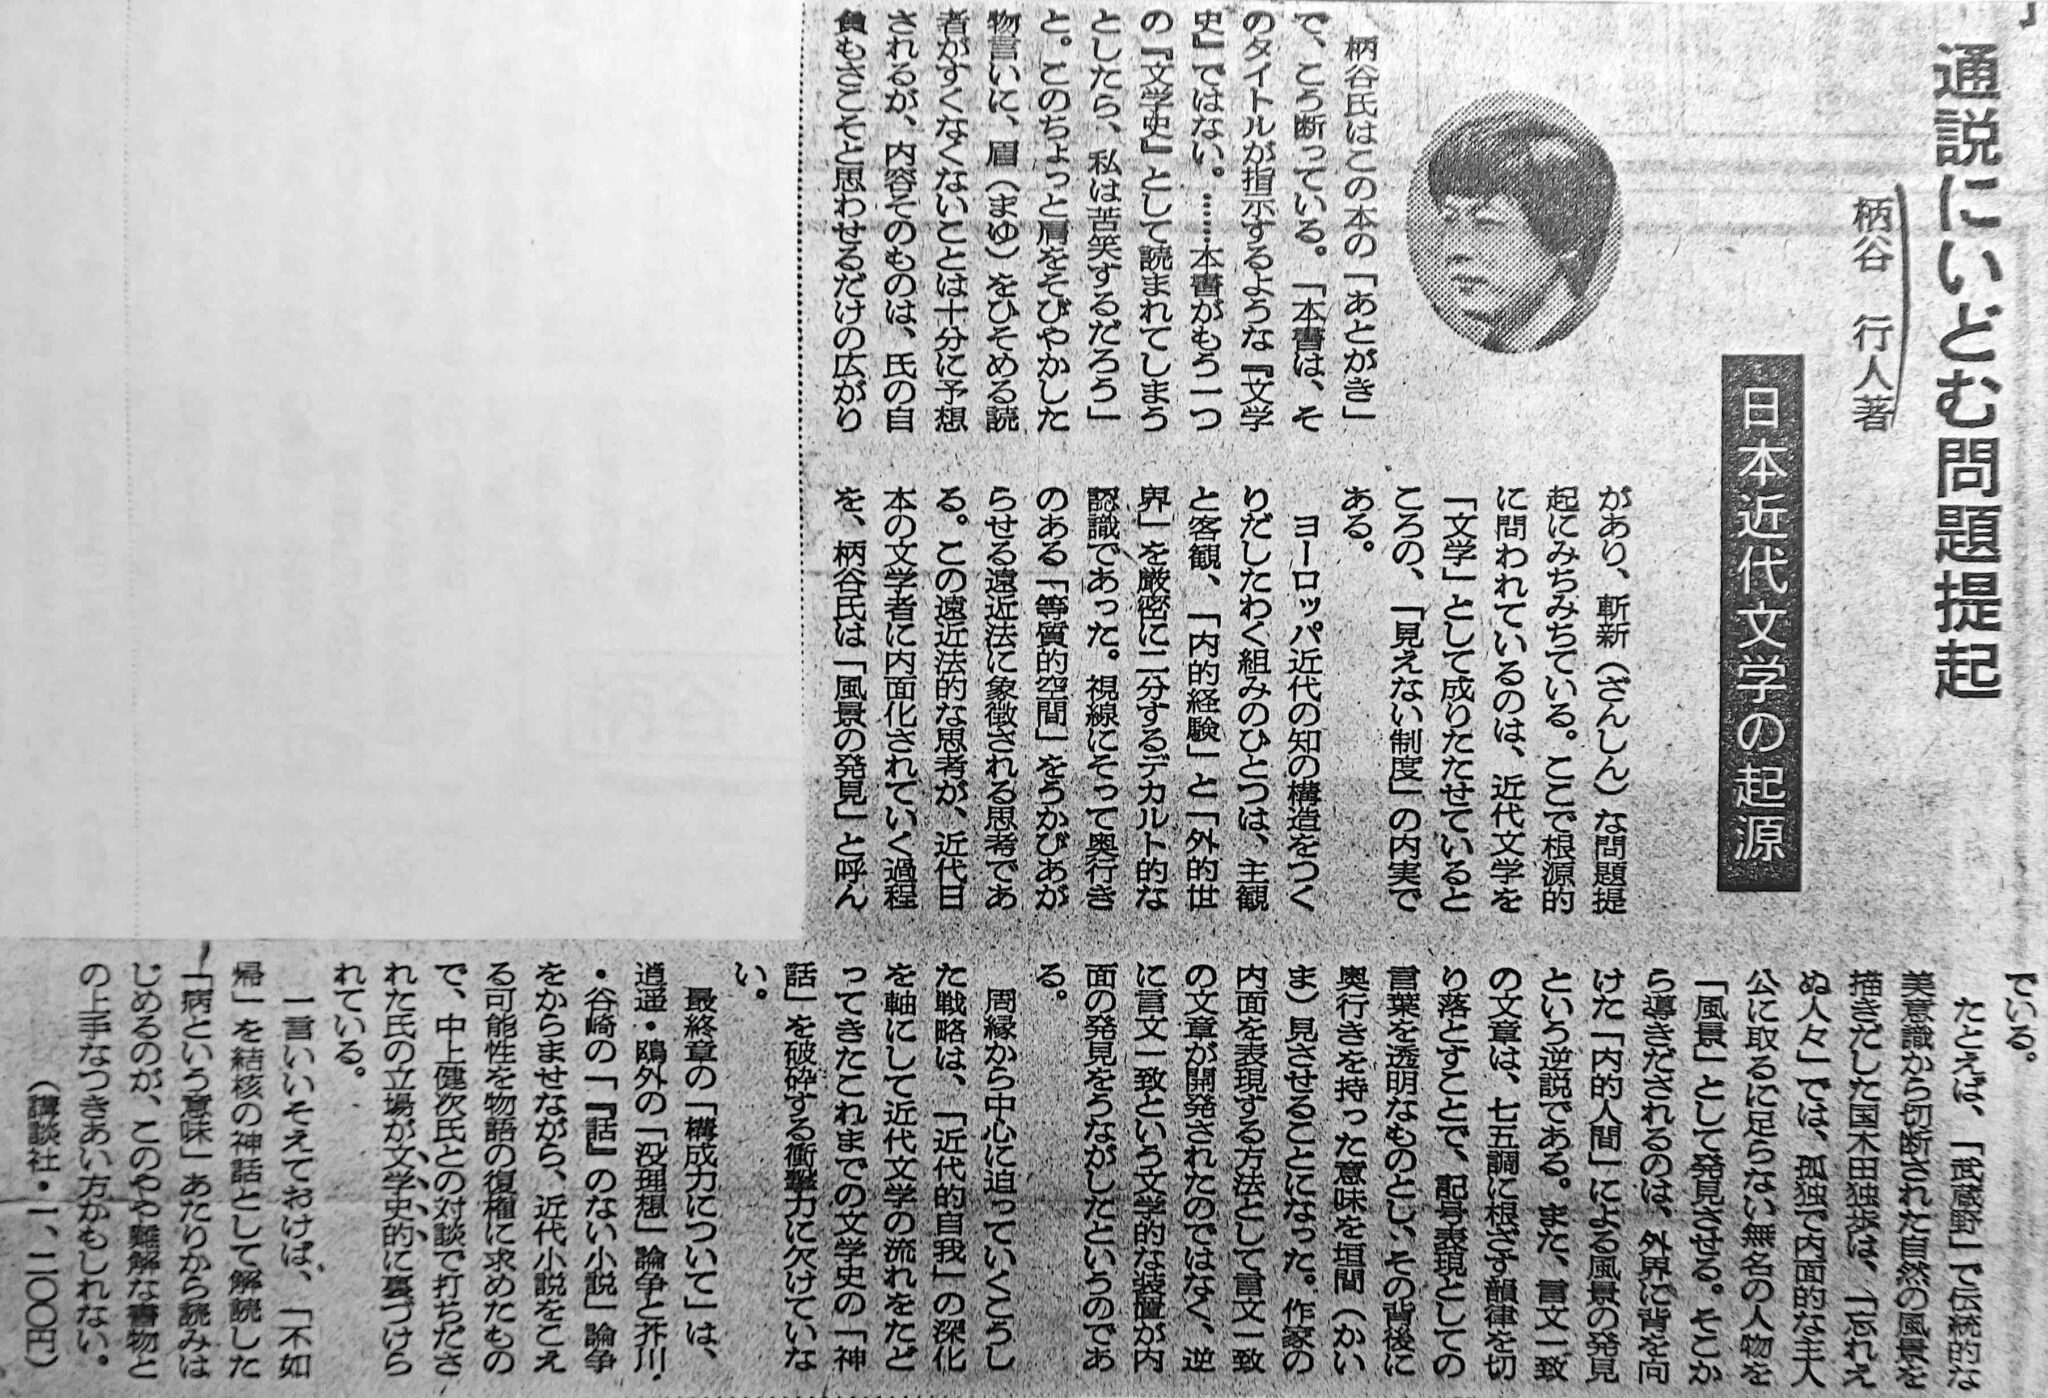 通説にいどむ問題提起
柄谷 行人著
日本近代文学の起源
柄谷氏はこの本の「あとがき」
で、こう断っている。「本書は、そ
のタイトルが指示するような『文学
史』ではない。……本書がもう一つ
の『文学史』として読まれてしまう
としたら、私は苦笑するだろう」
と。このちょっと肩をそびやかした
物言いに、眉（まゆ）をひそめる読
者がすくなくないことは十分に予想
されるが、内容そのものは、氏の自
負もさこそと思わせるだけの広がり
があり、斬新（ざんしん）な問題提
起にみちみちている。ここで根源的
に問われているのは、近代文学を
「文学」として成りたたせていると
ころの、「見えない制度」の内実で
ある。
ヨーロッパ近代の知の構造をつく
りだしたわく組みのひとつは、主観
と客観、「内的経験」と「外的世
界」を厳密に二分するデカルト的な
認識であった。視線にそって奥行き
のある「等質的空間」をうかびあが
らせる遠近法に象徴される思考であ
る。この遠近法的な思考が、近代日
本の文学者に内面化されていく過程
を、柄谷氏は「風景の発見」と呼ん
でいる。
たとえば、「武蔵野」で伝統的な
美意識から切断された自然の風景を
描きだした国木田独歩は、「忘れえ
ぬ人々」では、孤独で内面的な主人
公に取るに足らない無名の人物を
「風景」として発見させる。そこか
ら導きだされるのは、外界に背を向
けた「内的人間」による風景の発見
という逆説である。また、言文一致
の文章は、七五調に根ざす韻律を切
り落とすことで、記号表現としての
言葉を透明なものとし、その背後に
奥行きを持った意味を垣間（かい
ま）見させることになった。作家の
内面を表現する方法として言文一致
の文章が開発されたのではなく、逆
に言文一致という文学的な装置が内
面の発見をうながしたというのであ
る。
周縁から中心に迫っていくこうし
た戦略は、「近代的自我」の深化
を軸にして近代文学の流れをたど
ってきたこれまでの文学史の「神
話」を破砕する衝撃力に欠けていな
い。
最終章の「構成力について」は、
逍遥・鴎外の「没理想」論争と芥川
・谷崎の「『話』のない小説」論争
をからませながら、近代小説をこえ
る可能性を物語の復権に求めたもの
で、中上健次氏との対談で打ちださ
れた氏の立場が文学史的に裏づけら
れている。
一言いいそえておけば、「不如
帰」を結核の神話として解読した
「病という意味」あたりから読みは
じめるのが、このやや難解な書物と
の上手なつきあい方かもしれない。
（講談社・一、二〇〇円）